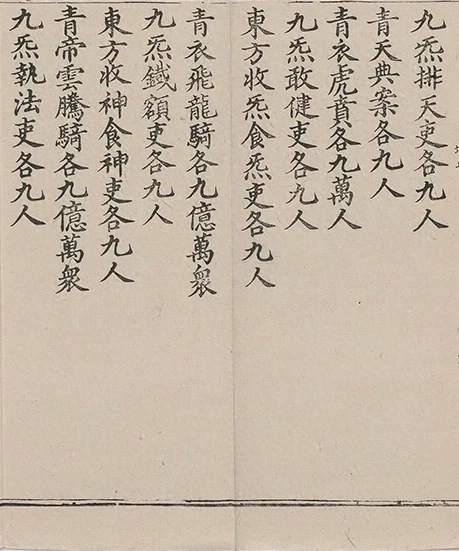 九炁排天吏各九人
青天典案各九人
青衣虎賁各九萬人
九炁敢健吏各九人
東方收炁食炁吏各九人
青衣飛龍騎各九億萬衆
九炁鐵額吏各九人
東方收神食神吏各九人
青帝雲騰騎各九億萬衆
九炁執法吏各九人